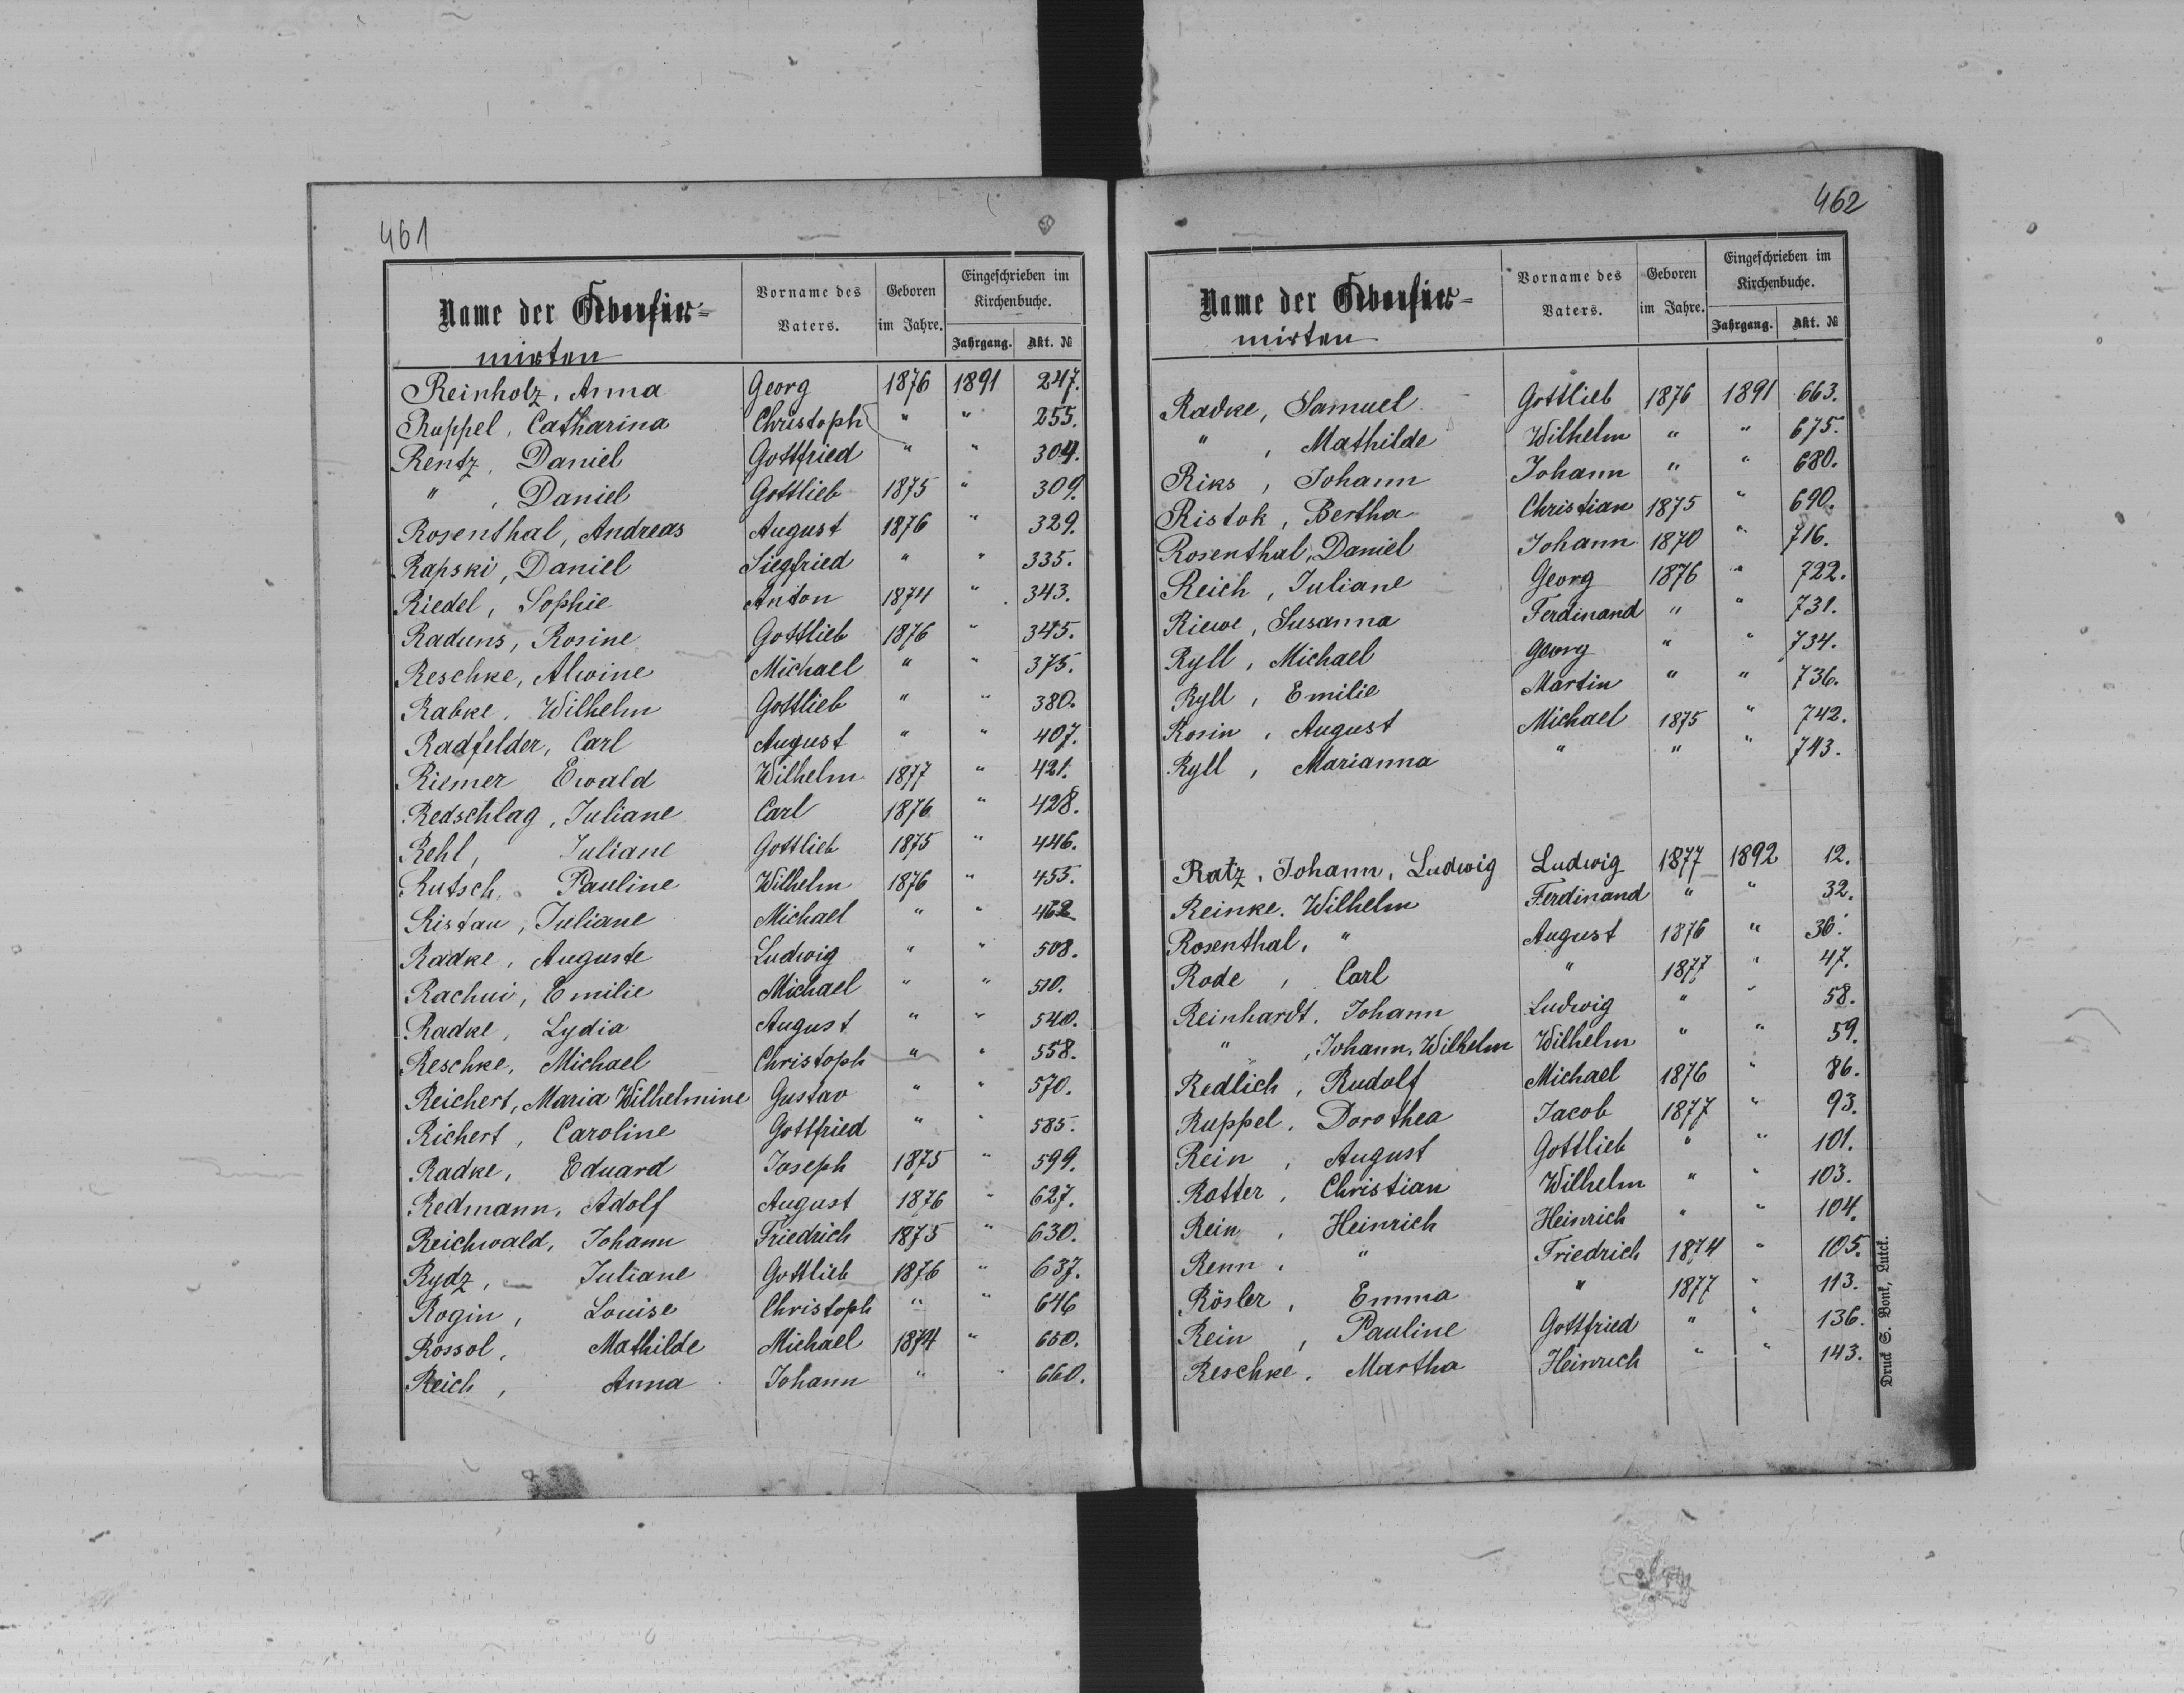 461
Name der Confir-
mirten
Vorname des
Vaters.
Geboren
im Jahre.
Eingeschrieben im
Kirchenbuche.
Jahrgang. Akt. №
Reinholz, Anna Georg 1876 1891 247.
Ruppel, Catharina Christoph " " 255.
Rentz, Daniel Gottfried " " 304.
" , Daniel Gottlieb 1875 " 309.
Rosenthal, Andreas August 1876 " 329.
Rapski, Daniel Siegfried " " 335.
Riedel, Sophie Anton 1874 " 343.
Raduns, Rosine Gottlieb 1876 " 345.
Reschke, Alwine Michael " " 375.
Rabke, Wilhelm Gottlieb " " 380.
Radfelder, Carl August " " 407.
Riemer Ewald Wilhelm 1877 " 421.
Redschlag, Juliane Carl 1876 " 428.
Rehl, Juliane Gottlieb 1875 " 446.
Rutsch, Pauline Wilhelm 1876 " 455.
Ristau, Juliane Michael " " 462
Radke, Auguste Ludwig " " 508.
Rachui, Emilie Michael " " 510.
Radke, Lydia August " " 540.
Reschke, Michael Christoph " " 558.
Reichert, Maria Wilhelmine Gustav " " 570.
Richert, Caroline Gottfried " " 585.
Radke, Eduard Joseph 1875 " 599.
Redmann, Adolf August 1876 " 627.
Reichwald, Johann Friedrich 1875 " 630.
Rydz, Juliane Gottlieb 1876 " 637.
Rogin, Louise Christoph " " 646
Rossol, Mathilde Michael 1874 " 650.
Reich, Anna Johann " " 660.
462
Name der Confir-
mirten
Vorname des
Vaters.
Geboren
im Jahre.
Eingeschrieben im
Kirchenbuche.
Jahrgang. Akt. №
Radke, Samuel Gottlieb 1876 1891 663.
" , Mathilde Wilhelm " " 675.
Riks, Johann Johann " " 680.
Ristok, Bertha Christian 1875 " 690.
Rosenthal, Daniel Johann 1870 " 716.
Reich, Juliane Georg 1876 " 722.
Riewe, Susanna Ferdinand " " 731.
Ryll, Michael Georg " " 734.
Ryll, Emilie Martin " " 736.
Rosin, August Michael 1875 " 742.
Ryll, Marianna " " " 743.
Ratz, Johann, Ludwig Ludwig 1877 1892 12.
Reinke, Wilhelm Ferdinand " " 32.
Rosenthal, " August 1876 " 36.
Rode, Carl " 1877 " 47.
Reinhardt, Johann Ludwig " " 58.
" , Johann, Wilhelm Wilhelm " " 59.
Redlich, Rudolf Michael 1876 " 86.
Ruppel, Dorothea Jacob 1877 " 93.
Rein, August Gottlieb " " 101.
Ratter, Christian Wilhelm " " 103.
Rein, Heinrich Heinrich " " 104.
Renn, " Friedrich 1874 " 105.
Rösler, Emma " 1877 " 113.
Rein, Pauline Gottfried " " 136.
Reschke, Martha Heinrich " " 143.
Druck S. Bonk, Lutck.